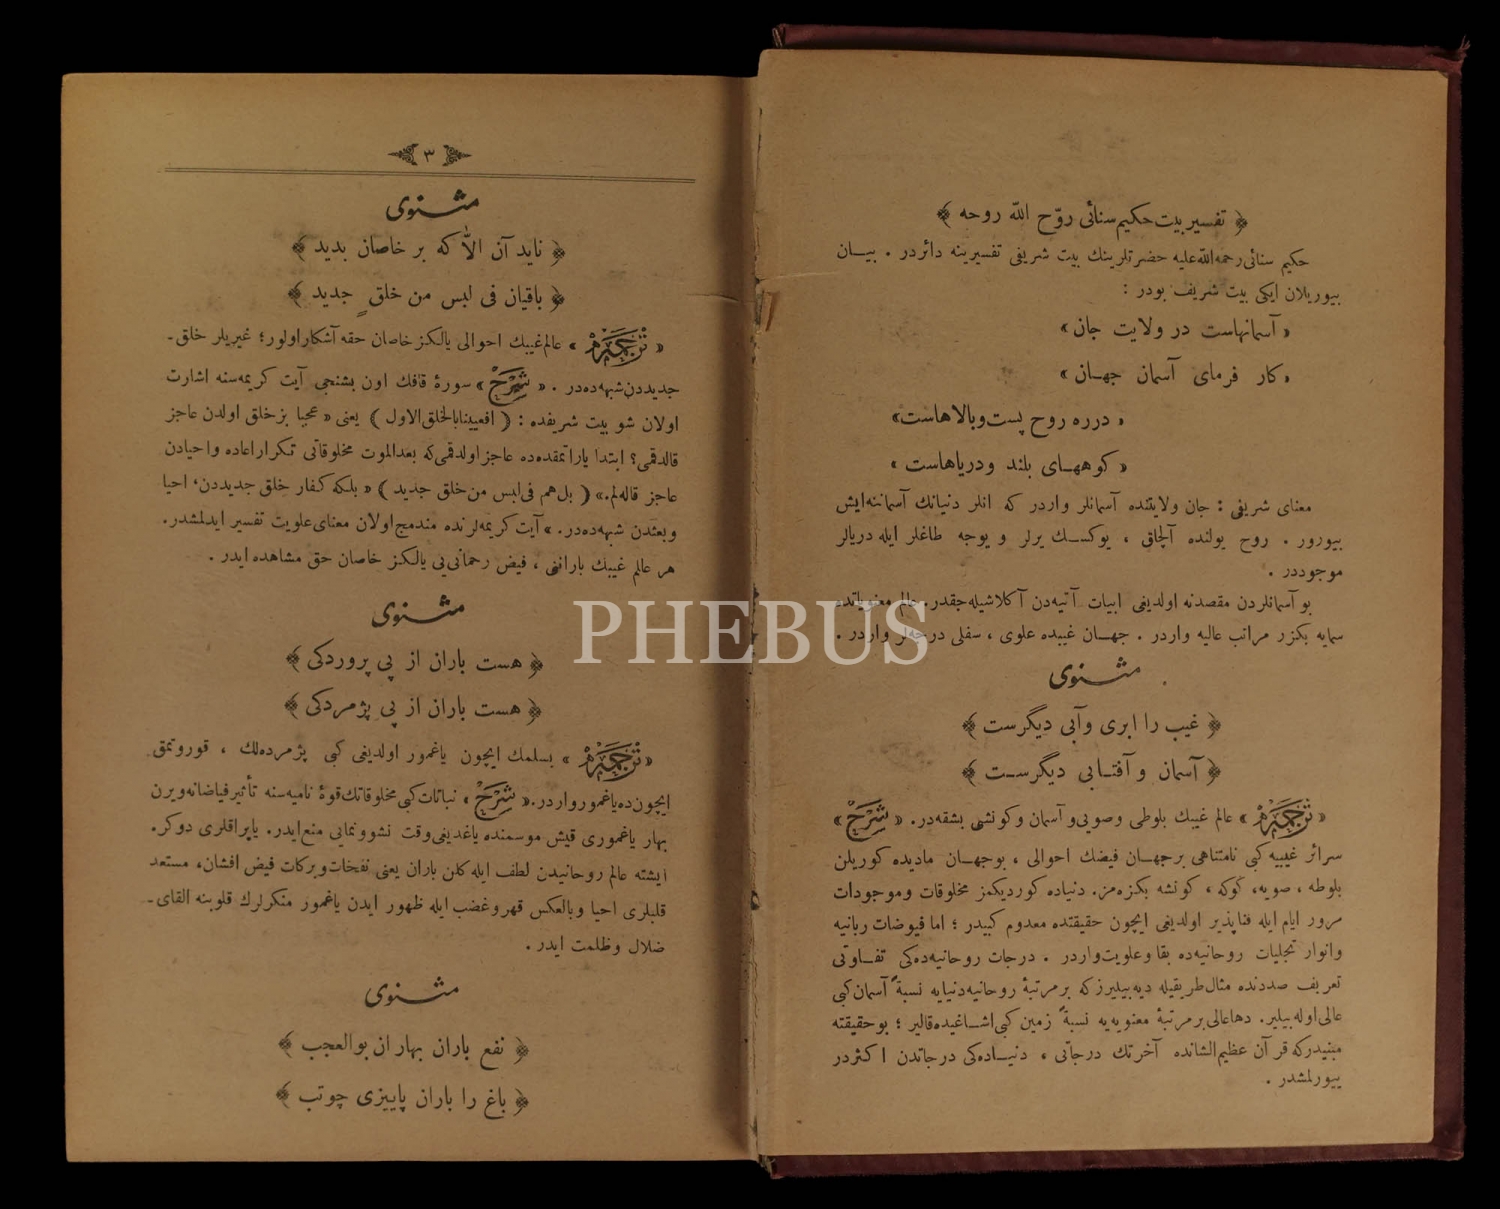 ﴿ تفسیر بیت حکیم سنائی روّح اللّه روحه ﴾
حکیم سنائی رحمه‌اللّه‌علیه حضرتلرینك بیت شریفی تفسیرینه دائردر . بیـــان
بیوریلان ایکی بیت شریف بودر :
« آسمانهاست در ولایت جان »
« کار فرمای آسمان جهـان »
« درره روح پست وبالاهاست »
« کوههـای بلند ودریاهاست »
معنای شریفی : جان ولایتنده آسمانلر واردر که انلر دنیانك آسماننه‌ایش
بیورور . روح یولنده آلچاق ، یوکسـك یرلر و یوجه طاغلر ایله دریالر
موجوددر .
بو آسمانلردن مقصدنه اولدیغی ابیات آتیه‌دن آکلاشیله‌جقدر . عالم معنویاتده
سمایه بکزر مراتب عالیه واردر . جهـان غیبده علوی ، سفلی درجه‌لر واردر .
مثـنوی
﴿ غیب را ابری وآبی دیگرست ﴾
﴿ آسمان و آفتـابی دیگرسـت ﴾
« ترجمه » عالم غیبك بلوطی وصویی‌و آسمان وکونشی بشقه‌در. « شرح »
سرائر غیبیه کبی نامتناهی برجهـان فیضك احوالی ، بوجهـان مادیده کوریلن
بلوطه ، صویه، کوکه ، کونشه بکزه‌مز. دنیاده کوردیکمز مخلوقات وموجودات
مرور ایام ایله فناپذیر اولدیغی ایچون حقیقتده معدوم کبیدر ؛ اما فیوضات ربانیه
وانوار تجلیات روحانیه‌ده بقا وعلویت‌واردر . درجات روحانیه‌ده‌کی تفـاوتی
تعریف صددنده مثال‌طریقیله دیه‌بیلیرزکه برمرتبهٔ روحانیه‌دنیایه نسبةً آسمان‌کبی
عالی‌اوله‌بیلیر. دهاعالی‌برمرتبهٔ معنویه‌یه نسبةً زمین‌کبی‌اشـاغیده‌قالیر ؛ بوحقیقته
مبنیدرکه قرآن عظیم‌الشانده آخرتك درجاتی ، دنیـاده‌کی درجاتدن اکثردر
بیورلمشدر .
۳
مثـنوی
﴿ ناید آن الاّ که بر خاصان بدید ﴾
﴿ باقیان فی لبس من خلقٍ جدید ﴾
« ترجمه » عالم‌غیبك احوالی یالکز خاصان حقه آشکار اولور؛ غیریلر خلق-
جدیددن‌شبهه‌ده‌در . « شرح » سورهٔ قافك اون بشنجی آیت کریمه‌سنه اشارت
اولان شو بیت شریفده : ( افعیینابالخلق‌الاول ) یعنی « عجبا بزخلق اولدن عاجز
قالدقمی؟ ابتدا یاراتمقده‌ده عاجزاولدقمی‌که بعدالموت مخلوقاتی تکراراعاده واحیادن
عاجز قاله‌لم.» ( بل‌هم فی‌لبس من‌خلق جدید ) « بلکه کفار خلق جدیددن، احیا
وبعثدن شبهه‌ده‌در. » آیت کریمه‌لرنده مندمج‌اولان معنای‌علویت تفسیر ایدلمشدر.
هر عالم غیبك بارانی ، فیض رحمانی‌یی یالکز خاصان حق مشاهده ایدر .
مثـنوی
﴿ هست باران از پی پروردکی ﴾
﴿ هست باران از پی پژمردکی ﴾
« ترجمه » بسلمك ایچون یاغمور اولدیغی کبی پژمرده‌لك ، قوروتمق
ایچون‌ده‌یاغمورواردر. « شرح » نباتات‌کبی‌مخلوقاتك‌قوهٔ نامیه‌سنه تأثیرفیاضانه‌ویرن
بهار یاغموری قیش موسمنده یاغدیغی‌وقت نشوونمایی منع‌ایدر. یاپراقلری دوکر.
ایشته عالم روحانیدن لطف ایله کلن باران یعنی نفحات‌وبرکات فیض افشان، مستعد
قلبلری احیا وبالعکس قهروغضب ایله ظهور ایدن یاغمور منکرلرك قلوبنه القای-
ضلال وظلمت ایدر .
مثـنوی
﴿ نفع باران بهاران بوالعجب ﴾
﴿ باغ را باران پاییزی چوتب ﴾
PHEBUS